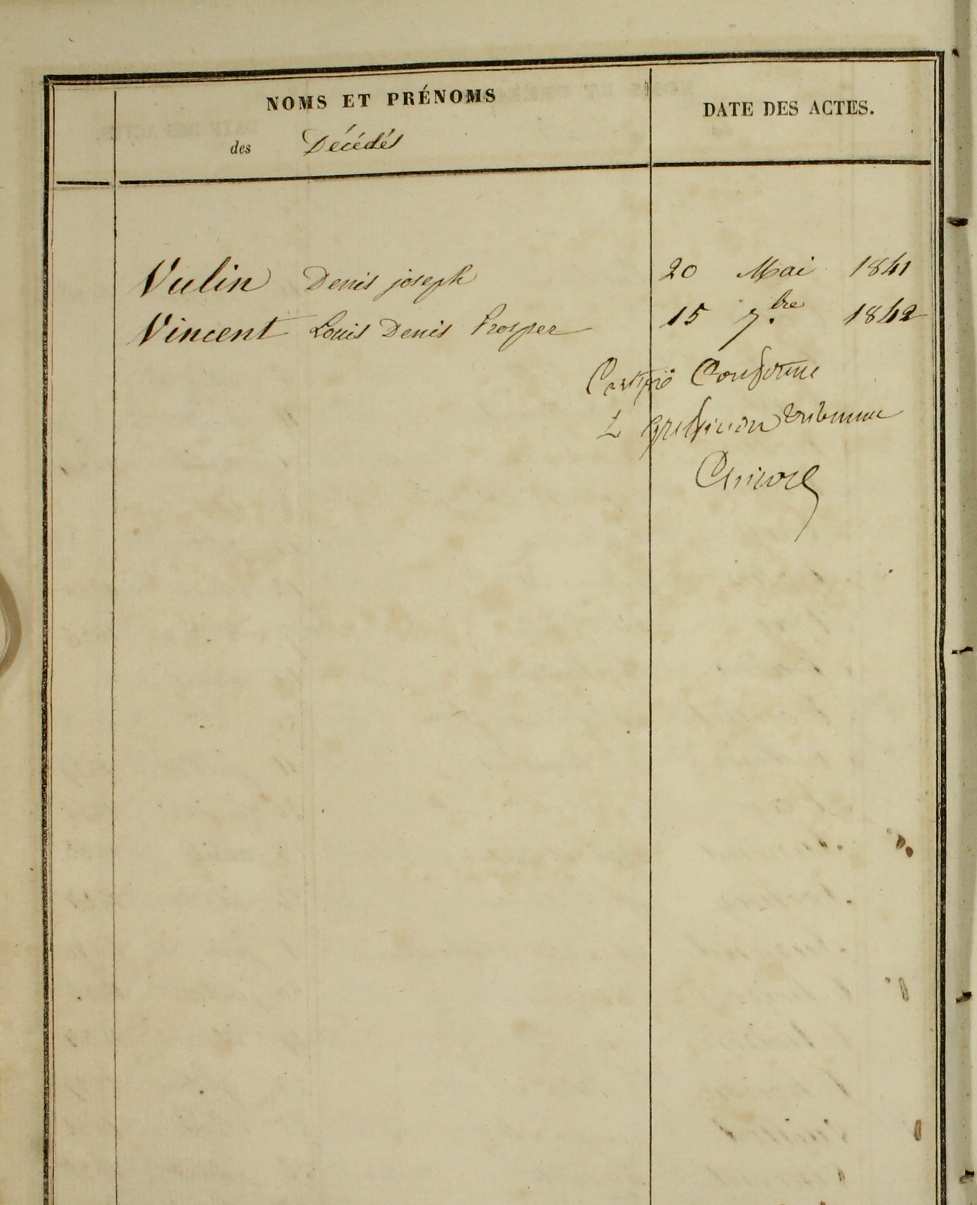 NOMS ET PRÉNOMS
des Décédés
DATE DES ACTES.
Vulin Denis joseph 20 Mai 1841
Vincent Louis Denis Prosper 15 7.bre 1842
Certifié Conforme